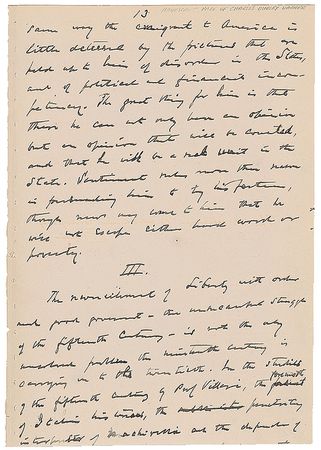 13
MANUSCRIPT PAGE OF CHARLES DUDLEY WARNER
same way the emigrant to America is
little deterred by the pictures that are
held up to him of disorder in the States,
and of political and financial
The great thing for him is that
there he can not only have an opinion
but an opinion that will be counted,
and that he will be a real unit in the
State. Sentiment rules more than
in him to try his fortune,
though news may come to him that he
will not escape either hard work or
poverty.
III.
The reconcilement of Liberty with order
and good government - the unsuccessful struggle
of the fifteenth century - is not the only
unsolved problem the nineteenth century is
carrying on to the twentieth. In the studies
of the fifteenth century of Prof Villari, the foremost
of Italian the penetrating
interpreter of Machiavelli and the defender of